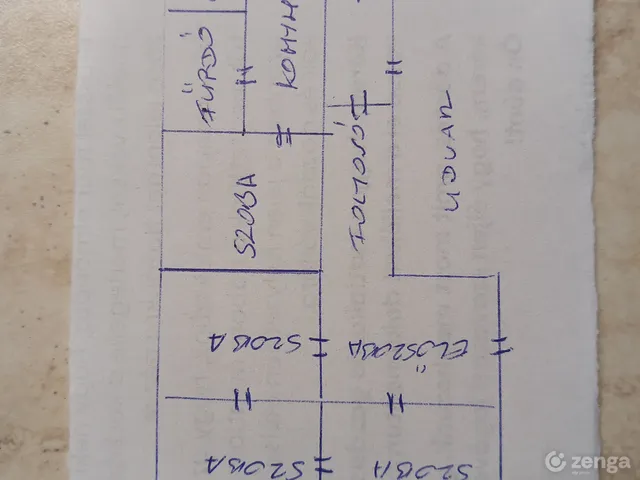 FÜRDŐ
KONYH
SZOBA
FOLYOSÓ
UDVAR
SZOBA
ELŐSZOBA
SZOBA
SZOBA
zenga